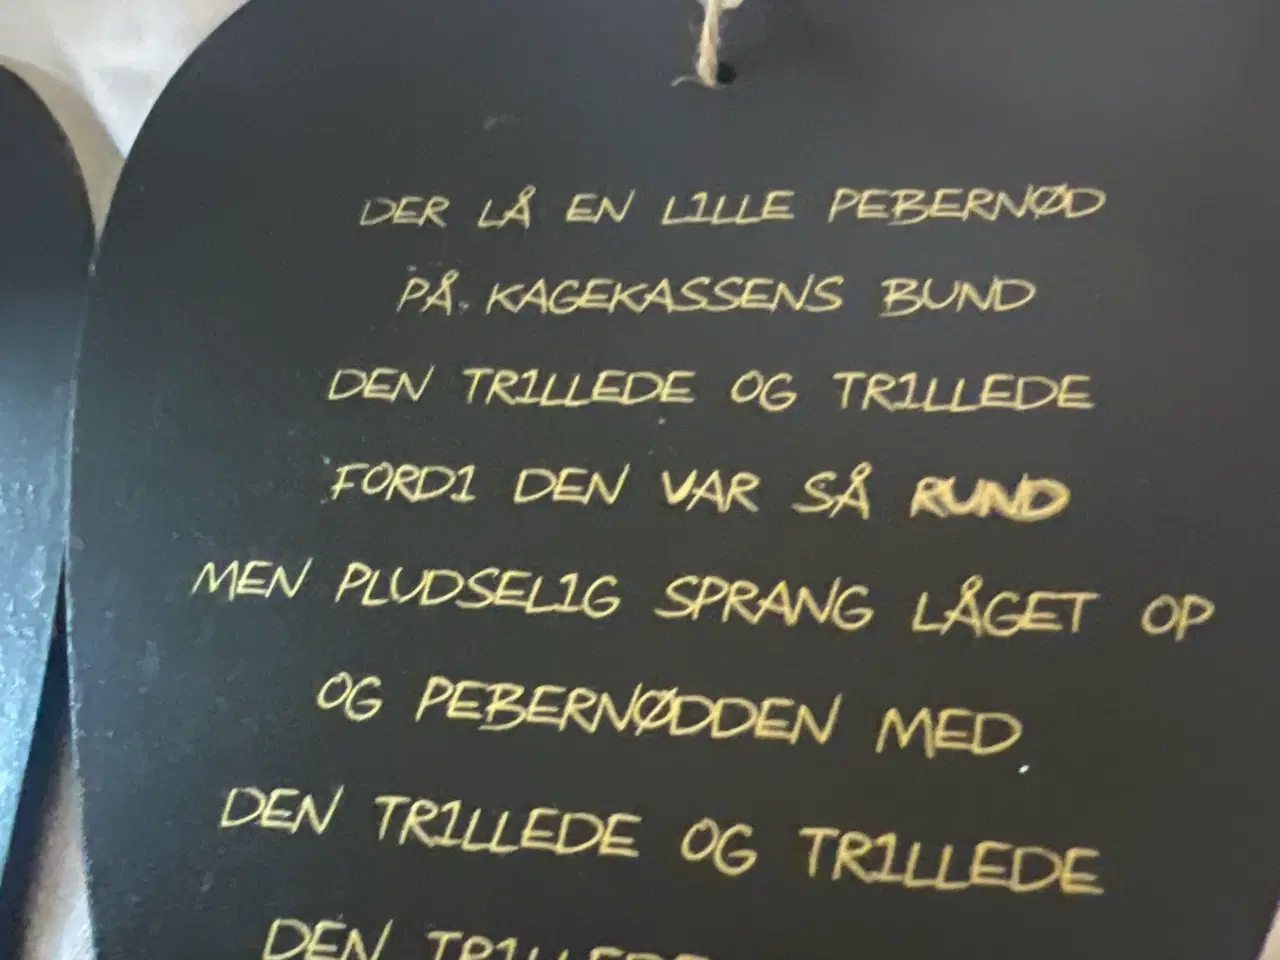 DER LÅ EN LILLE PEBERNØD
PÅ KAGEKASSENS BUND
DEN TRILLEDE OG TRILLEDE
FORDI DEN VAR SÅ RUND
MEN PLUDSELIG SPRANG LÅGET OP
OG PEBERNØDDEN MED
DEN TRILLEDE OG TRILLEDE
DEN TRILLEDE